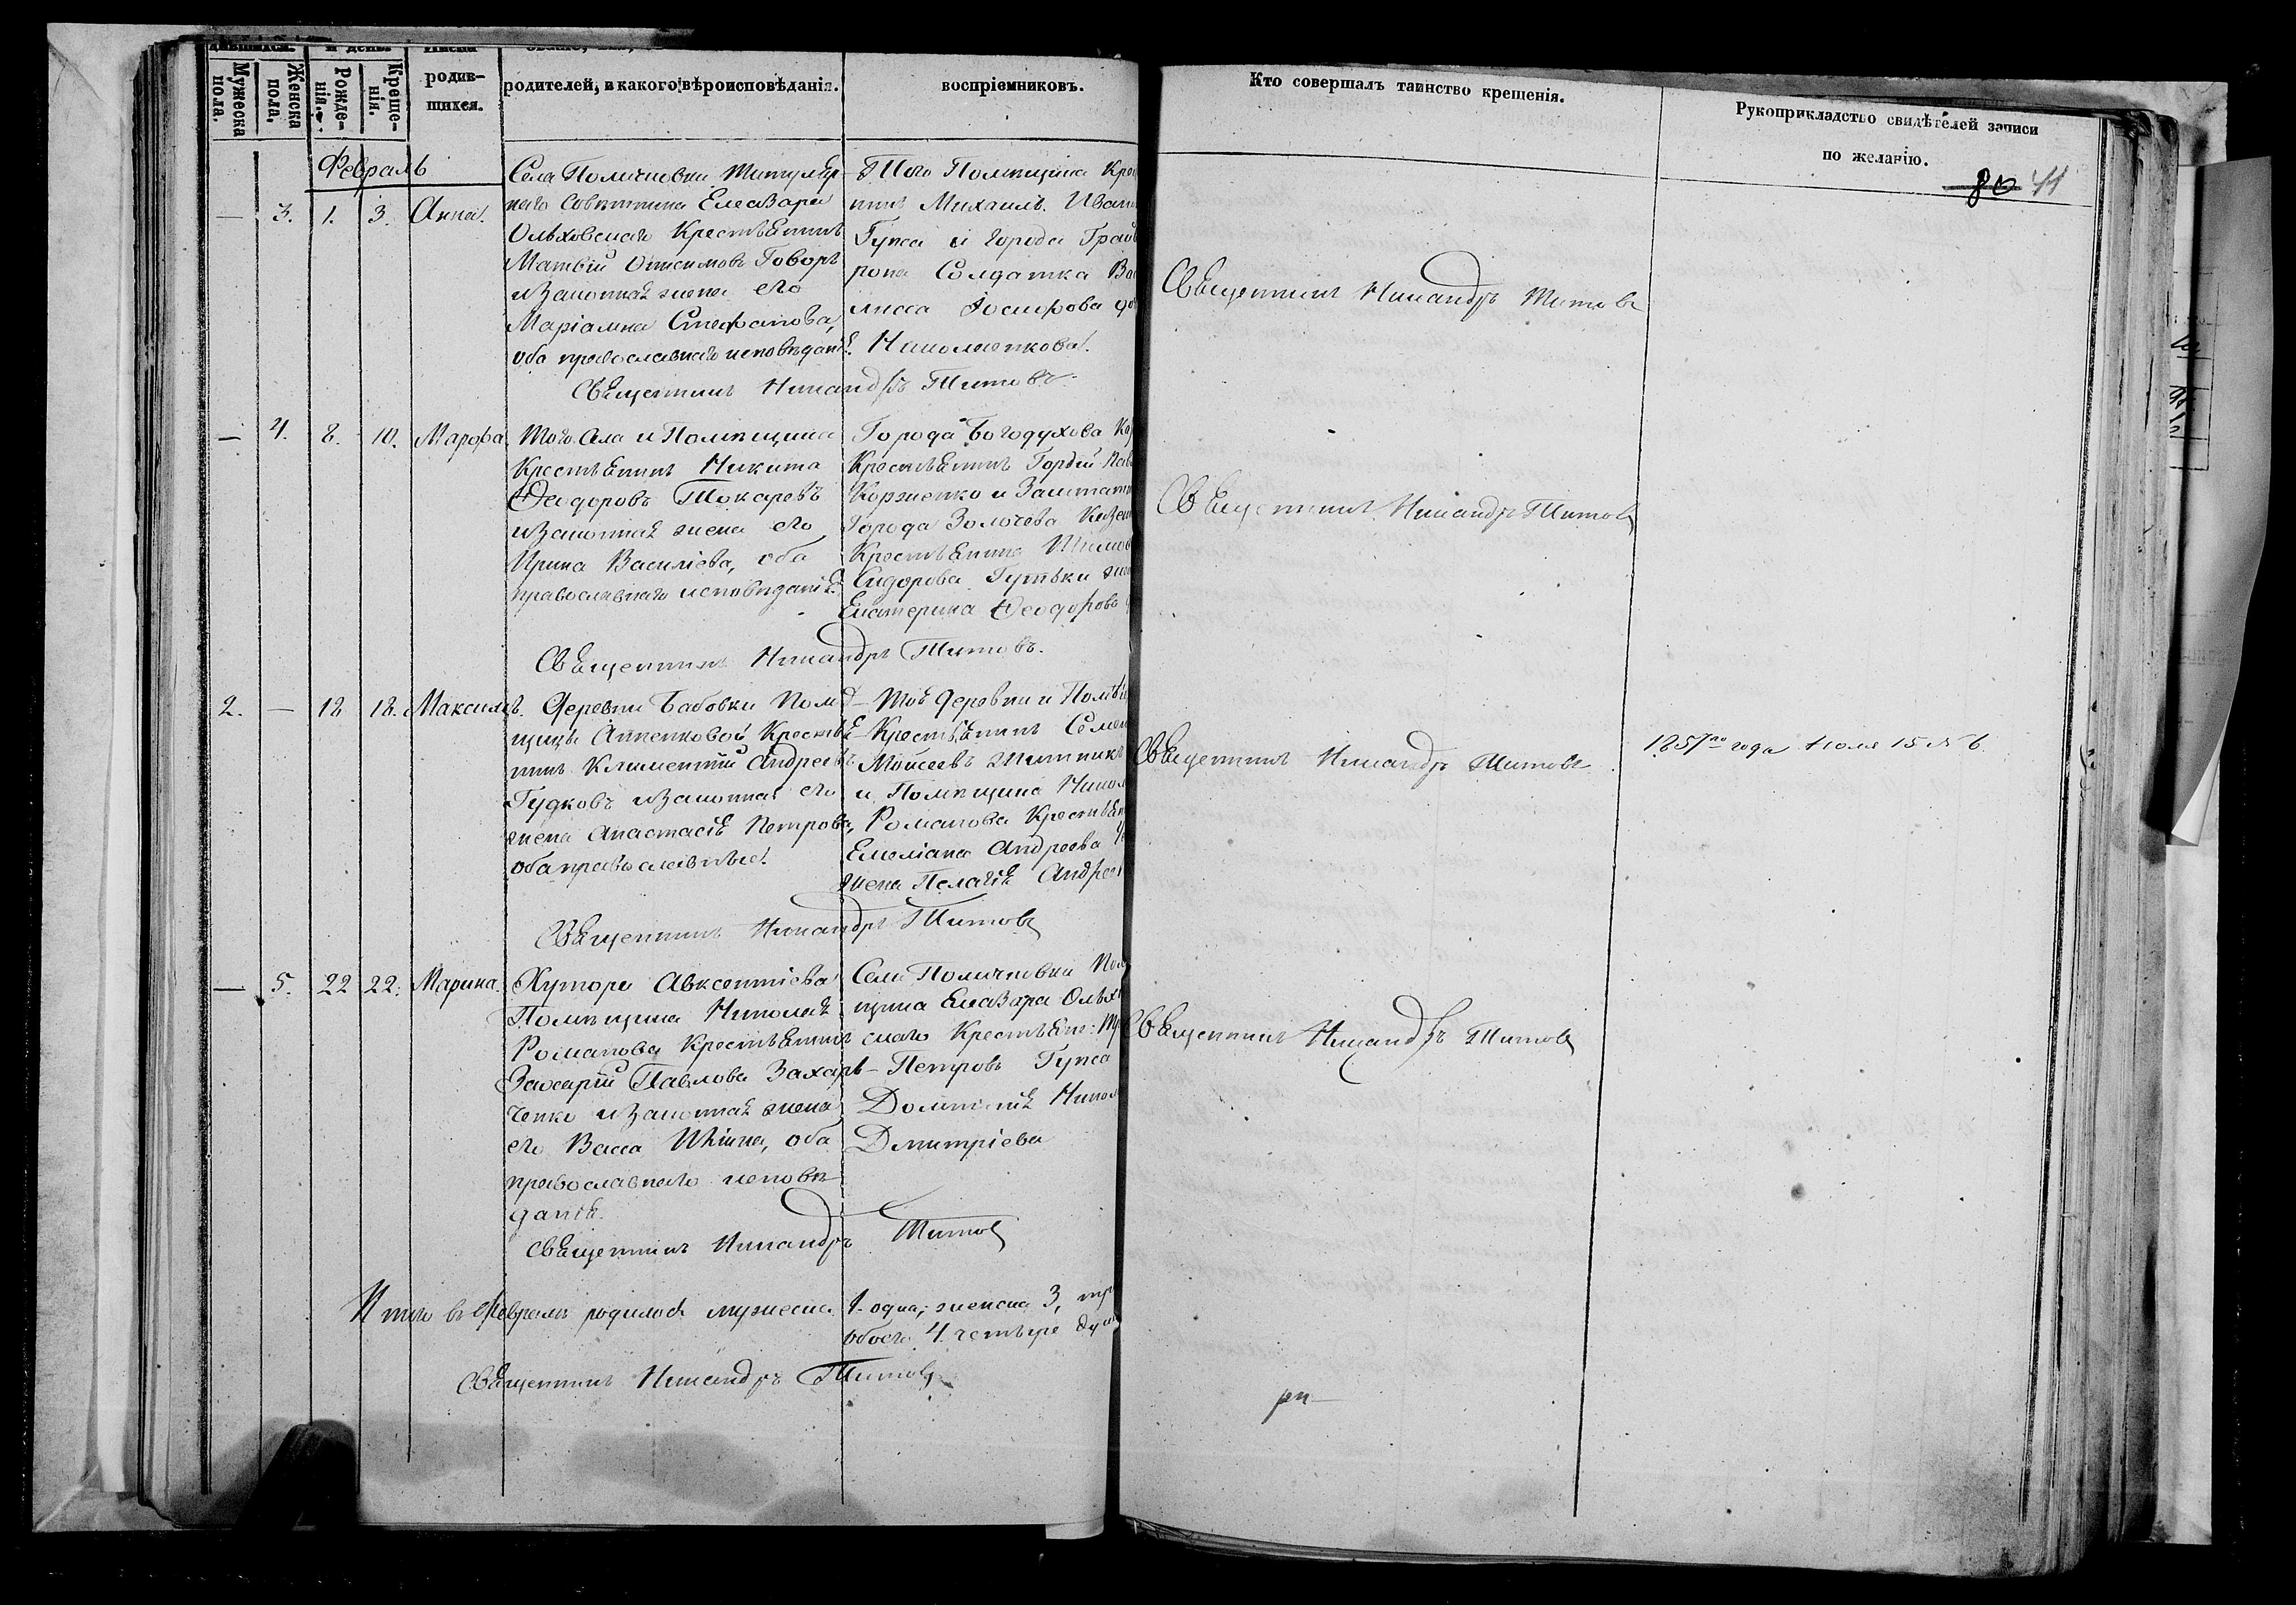 родившихся.
и день
Имена
Мужеска пола.
Женска пола.
Рожде-нія.
Креще-нія.
родив-
шихся.
родителей, и какого вѣроисповѣданія.
воспріемниковъ.
Кто совершалъ таинство крещенія.
Рукоприкладство свидѣтелей записи
по желанію.
80 41
Февраль
— 3. 1. 3. Анна.
Села Поличковки Титуляр-
наго Совѣтника Елеазара
Ольховскаго Крестьянинъ
Матвій Онисимовъ Говоръ
и законная жена его
Маріамна Стефанова,
оба православнаго исповѣданія.
Того Помѣщика Кре
нинъ Михаилъ Иван
Гупса и города Грайв
рона Солдатка Ва
лисса
Священникъ Никандръ Титовъ
Священникъ Никандръ Титовъ
— 4. 8. 10. Марфа.
Того Села и Помѣщика
Крестьянинъ Никита
Феодоровъ Токаревъ
и законная жена его
Ирина Василіева, оба
православнаго исповѣданія.
Города Богодухова Ка
Крестьянинъ Гордій Пав
Корженко и Заштатн
Города Золочева Казен
Крестьянина
Сидорова Гутьки жен
Екатерина Феодорова
Священникъ Никандръ Титовъ
Священникъ Никандръ Титовъ.
2. — 18 18. Максимъ.
Деревни Бабовки Помѣ-
щицы Анненковой Крестья-
нинъ Климентій Андреевъ
Гудковъ и законная его
жена Анастасія Петрова,
оба православные.
Той деревни и Помѣщ
Крестьянинъ Семен
Моисеевъ
и Помѣщика Никол
Романова Крестьян
Емеліана Андреева
жена Пелагія Андрее
Священникъ Никандръ Титовъ
1857го года Іюля 15 № 6.
Священникъ Никандръ Титовъ
— 5. 22 22. Марина.
Хутора Авксентіева
Помѣщика Николая
Романова Крестьянинъ
Захарій Павлова Захар-
ченко и законная жена
его Васса Ильина, оба
православнаго исповѣ-
данія.
Села Поличковки Пом
щика Елеазара Ольхов
скаго Крестьян:
Петровъ Гупса
Никол
Дмитріева
Священникъ Никандръ Титовъ
Священникъ Никандръ Титовъ
Итого въ Февралѣ родилось мужеска 1. одна, женска 3, тр
обоего 4. четыре душ
Священникъ Никандръ Титовъ